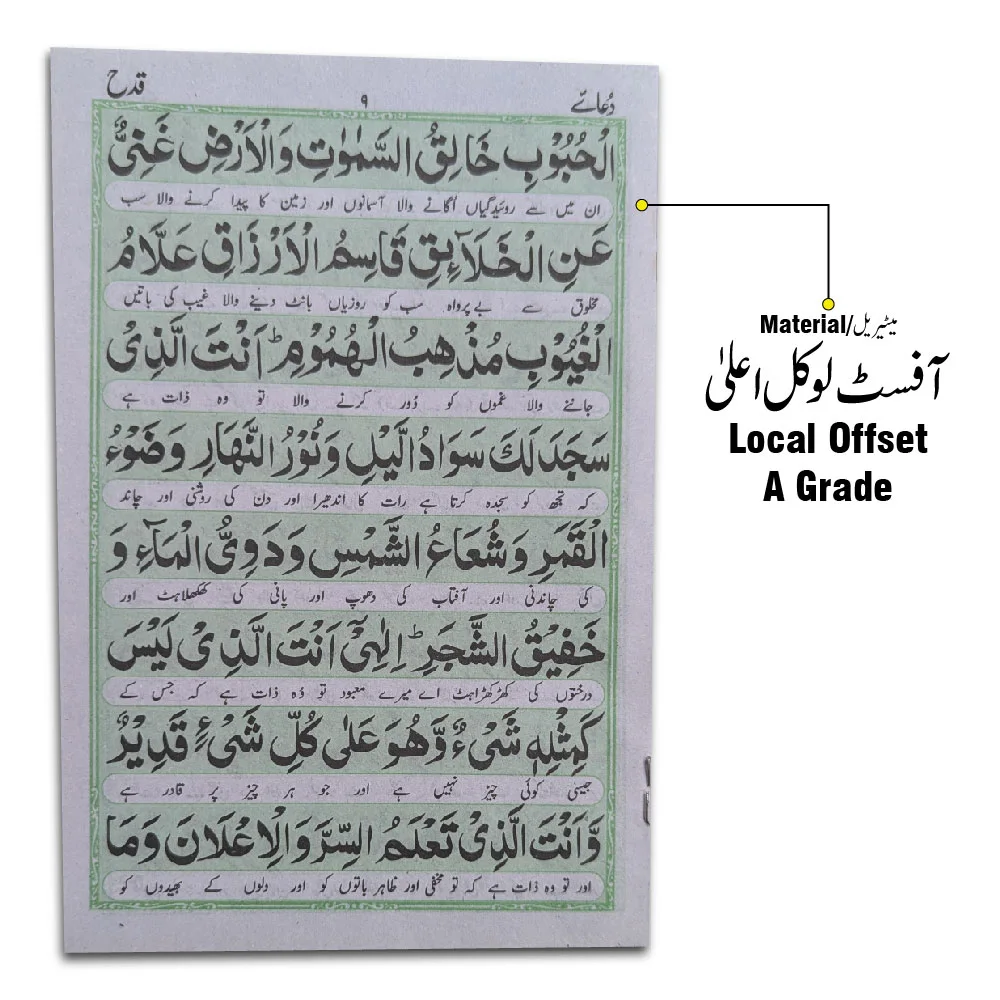 دُعائے ۹ قدح
الْحُبُوْبِ خَالِقُ السَّمٰوٰتِ وَالْاَرْضِ غَنِیٌّ
ان میں سے روئیدگیاں اُگانے والا آسمانوں اور زمین کا پیدا کرنے والا سب
عَنِ الْخَلَآئِقِ قَاسِمُ الْاَرْزَاقِ عَلَّامُ
مخلوق سے بےپرواہ سب کو روزیاں بانٹ دینے والا غیب کی باتیں
الْغُیُوْبِ مُذْهِبُ الْهُمُوْمِ ؕ اَنْتَ الَّذِیْ
جاننے والا غموں کو دُور کرنے والا تو وہ ذات ہے
سَجَدَ لَكَ سَوَادُ الَّیْلِ وَنُوْرُ النَّهَارِ وَضَوْءُ
کہ تجھ کو سجدہ کرتا ہے رات کا اندھیرا اور دن کی روشنی اور چاند
الْقَمَرِ وَشُعَاعُ الشَّمْسِ وَدَوِیُّ الْمَآءِ وَ
کی چاندنی اور آفتاب کی دھوپ اور پانی کی کھلکھلاہٹ اور
خَفِیْقُ الشَّجَرِ ؕ اِلٰهِیْٓ اَنْتَ الَّذِیْ لَیْسَ
درختوں کی کھڑکھڑاہٹ اے میرے معبود تو وُہ ذات ہے کہ جس کے
كَمِثْلِهٖ شَیْءٌ وَّهُوَ عَلٰی كُلِّ شَیْءٍ قَدِیْرٌ
جیسی کوئی چیز نہیں ہے اور جو ہر چیز پر قادر ہے
وَّاَنْتَ الَّذِیْ تَعْلَمُ السِّرَّ وَالْاِعْلَانَ وَمَا
اور تو وہ ذات ہے کہ تو مخفی اور ظاہر باتوں کو اور دلوں کے بھیدوں کو
Material/میٹیریل
آفسٹ لوکل اعلیٰ
Local Offset
A Grade